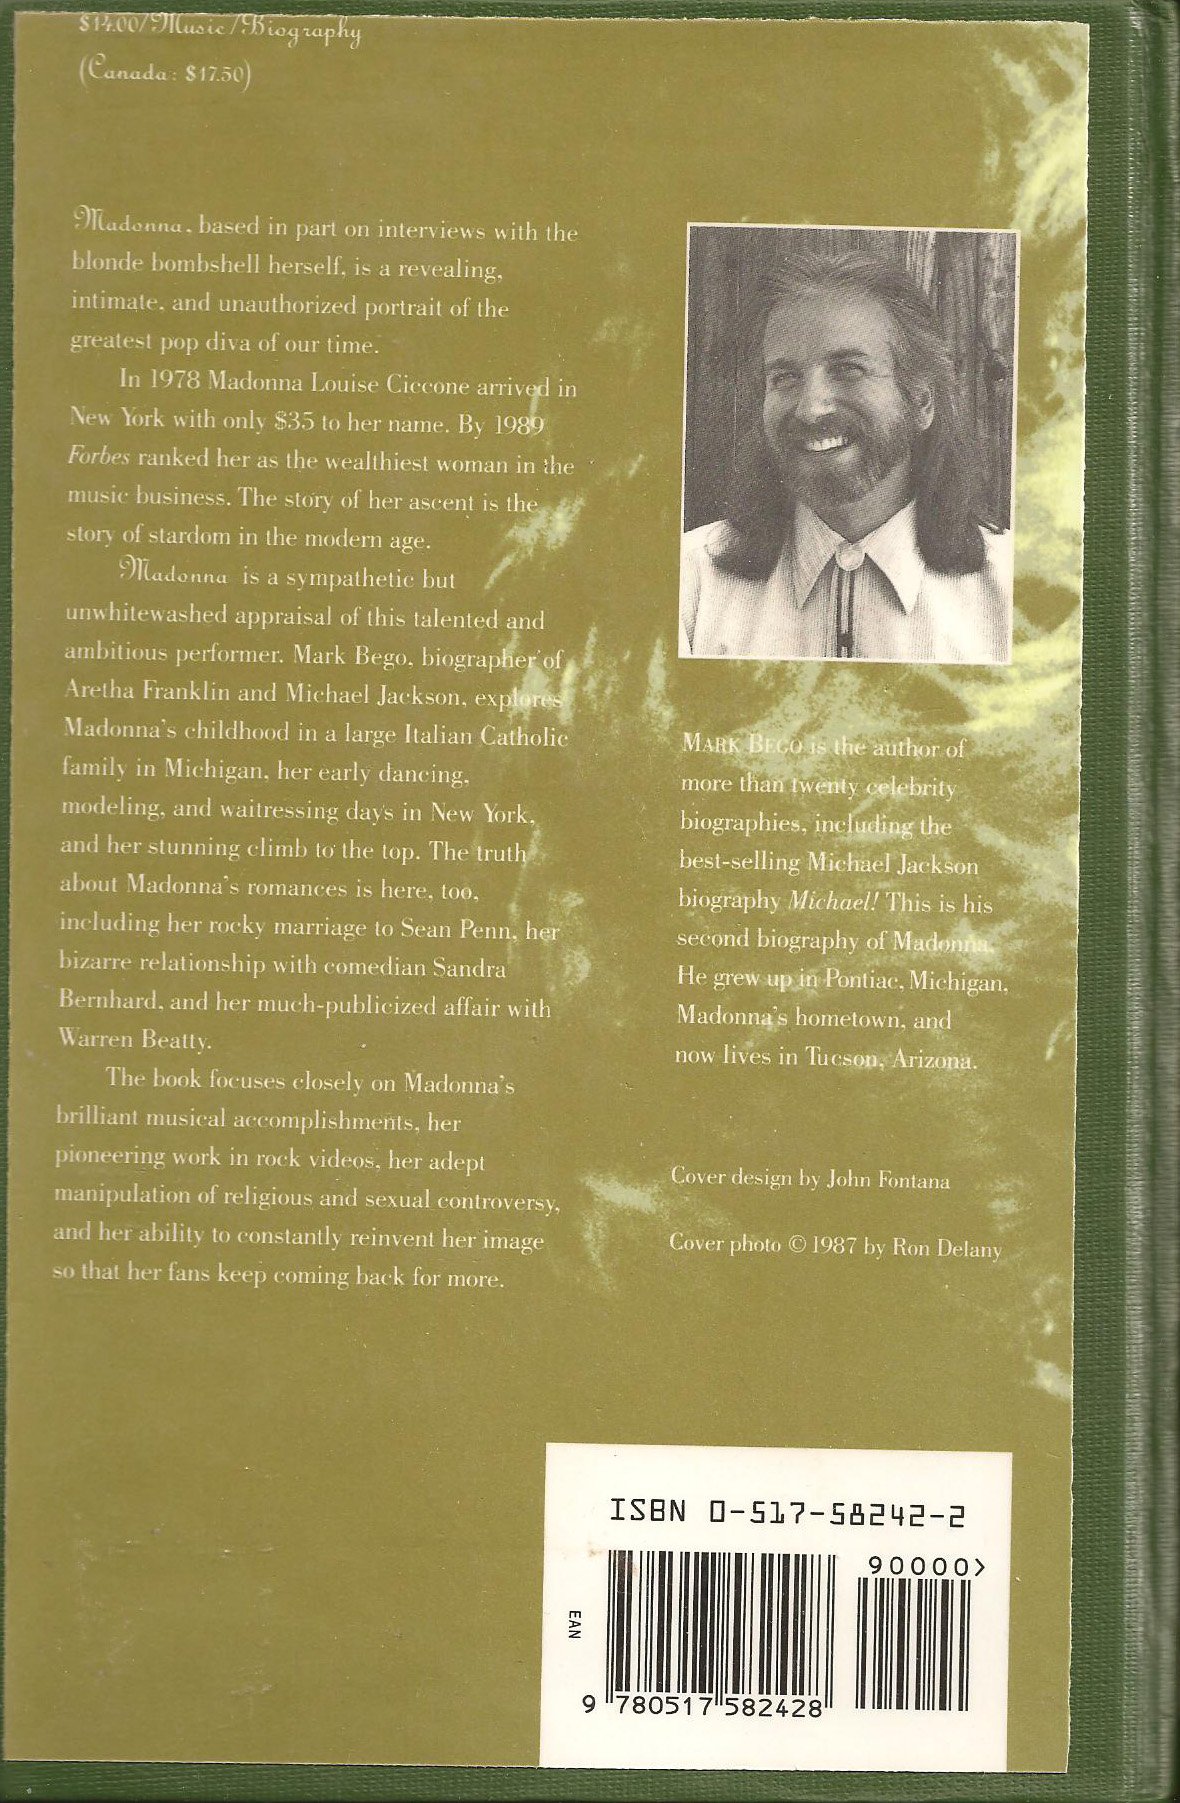 $14.00/Music/Biography
(Canada: $17.50)
Madonna, based in part on interviews with the
blonde bombshell herself, is a revealing,
intimate, and unauthorized portrait of the
greatest pop diva of our time.
In 1978 Madonna Louise Ciccone arrived in
New York with only $35 to her name. By 1989
Forbes ranked her as the wealthiest woman in the
music business. The story of her ascent is the
story of stardom in the modern age.
Madonna is a sympathetic but
unwhitewashed appraisal of this talented and
ambitious performer. Mark Bego, biographer of
Aretha Franklin and Michael Jackson, explores
Madonna's childhood in a large Italian Catholic
family in Michigan, her early dancing,
modeling, and waitressing days in New York,
and her stunning climb to the top. The truth
about Madonna's romances is here, too,
including her rocky marriage to Sean Penn, her
bizarre relationship with comedian Sandra
Bernhard, and her much-publicized affair with
Warren Beatty.
The book focuses closely on Madonna's
brilliant musical accomplishments, her
pioneering work in rock videos, her adept
manipulation of religious and sexual controversy,
and her ability to constantly reinvent her image
so that her fans keep coming back for more.
MARK BEGO is the author of
more than twenty celebrity
biographies, including the
best-selling Michael Jackson
biography Michael! This is his
second biography of Madonna.
He grew up in Pontiac, Michigan,
Madonna's hometown, and
now lives in Tucson, Arizona.
Cover design by John Fontana
Cover photo © 1987 by Ron Delany
ISBN 0-517-58242-2
90000>
EAN
9 780517 582428